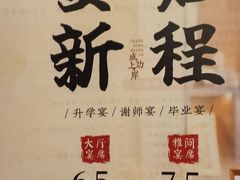 新程
成功
上岸
/升学宴/谢师宴/毕业宴/
大厅
宴席
雅间
宴席